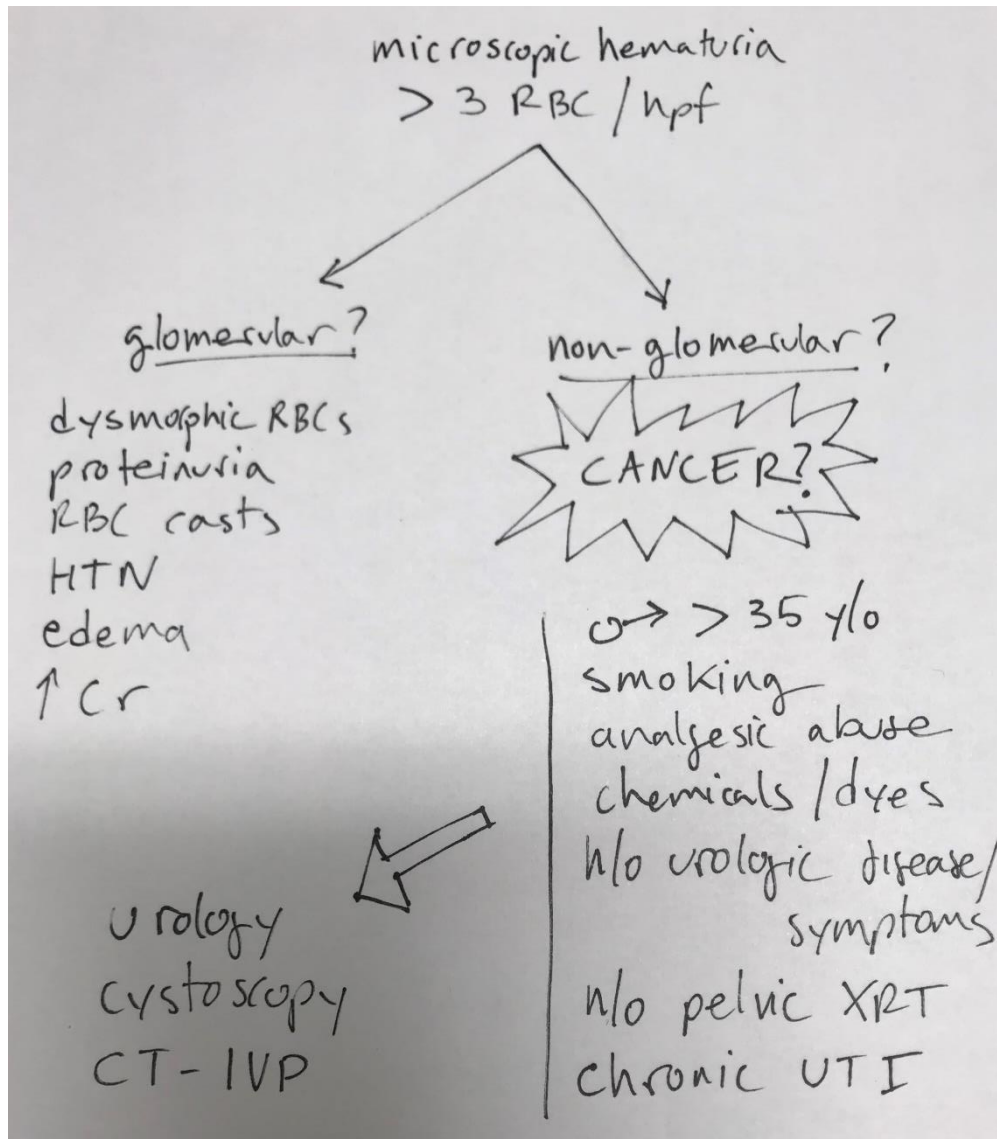 microscopic hematuria
> 3 RBC / hpf
glomerular?
dysmorphic RBCs
proteinuria
RBC casts
HTN
edema
↑ Cr
non-glomerular?
CANCER?
♂ > 35 y/o
smoking
analgesic abuse
chemicals / dyes
h/o urologic disease/
symptoms
h/o pelvic XRT
chronic UTI
urology
cystoscopy
CT-IVP